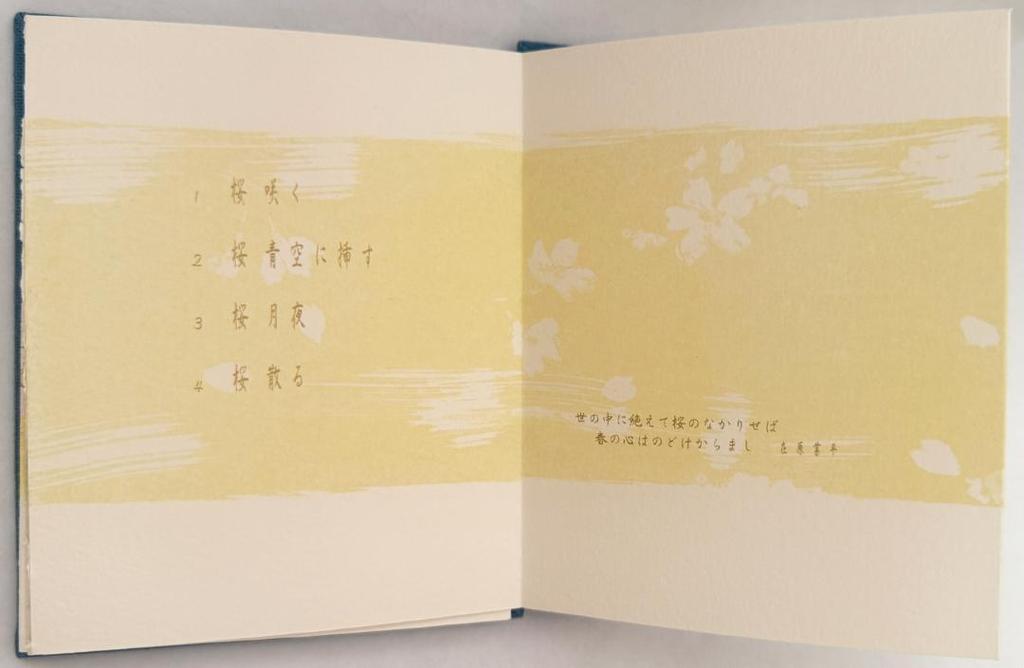 1 桜 咲く
2 桜 青空に挿す
3 桜 月夜
4 桜 散る
世の中に絶えて桜のなかりせば
春の心はのどけからまし 在原業平